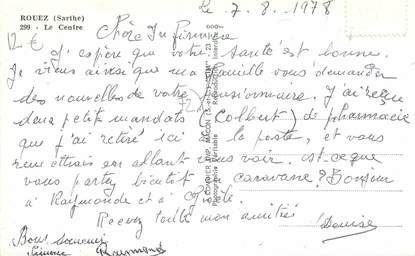 ROUEZ (Sarthe)
299 - Le Centre
le 7.8.1978
12 €
Chère Infirmière
J'espère que votre santé est bonne.
Je viens ainsi que ma famille vous demander
des nouvelles de votre pensionnaire. J'ai reçu
deux petits mandats (Colbert) de pharmacie
que j'ai retiré ici à la poste, et vous
remettrais en allant vous voir. est-ce que
vous partez bientôt en caravane? Bonjour
à Raymonde et à
Recevez toute mon amitiés
Denise
Bons souvenirs
Simone Raymond
COMBIER IMP. MACON
Photographie Véritable